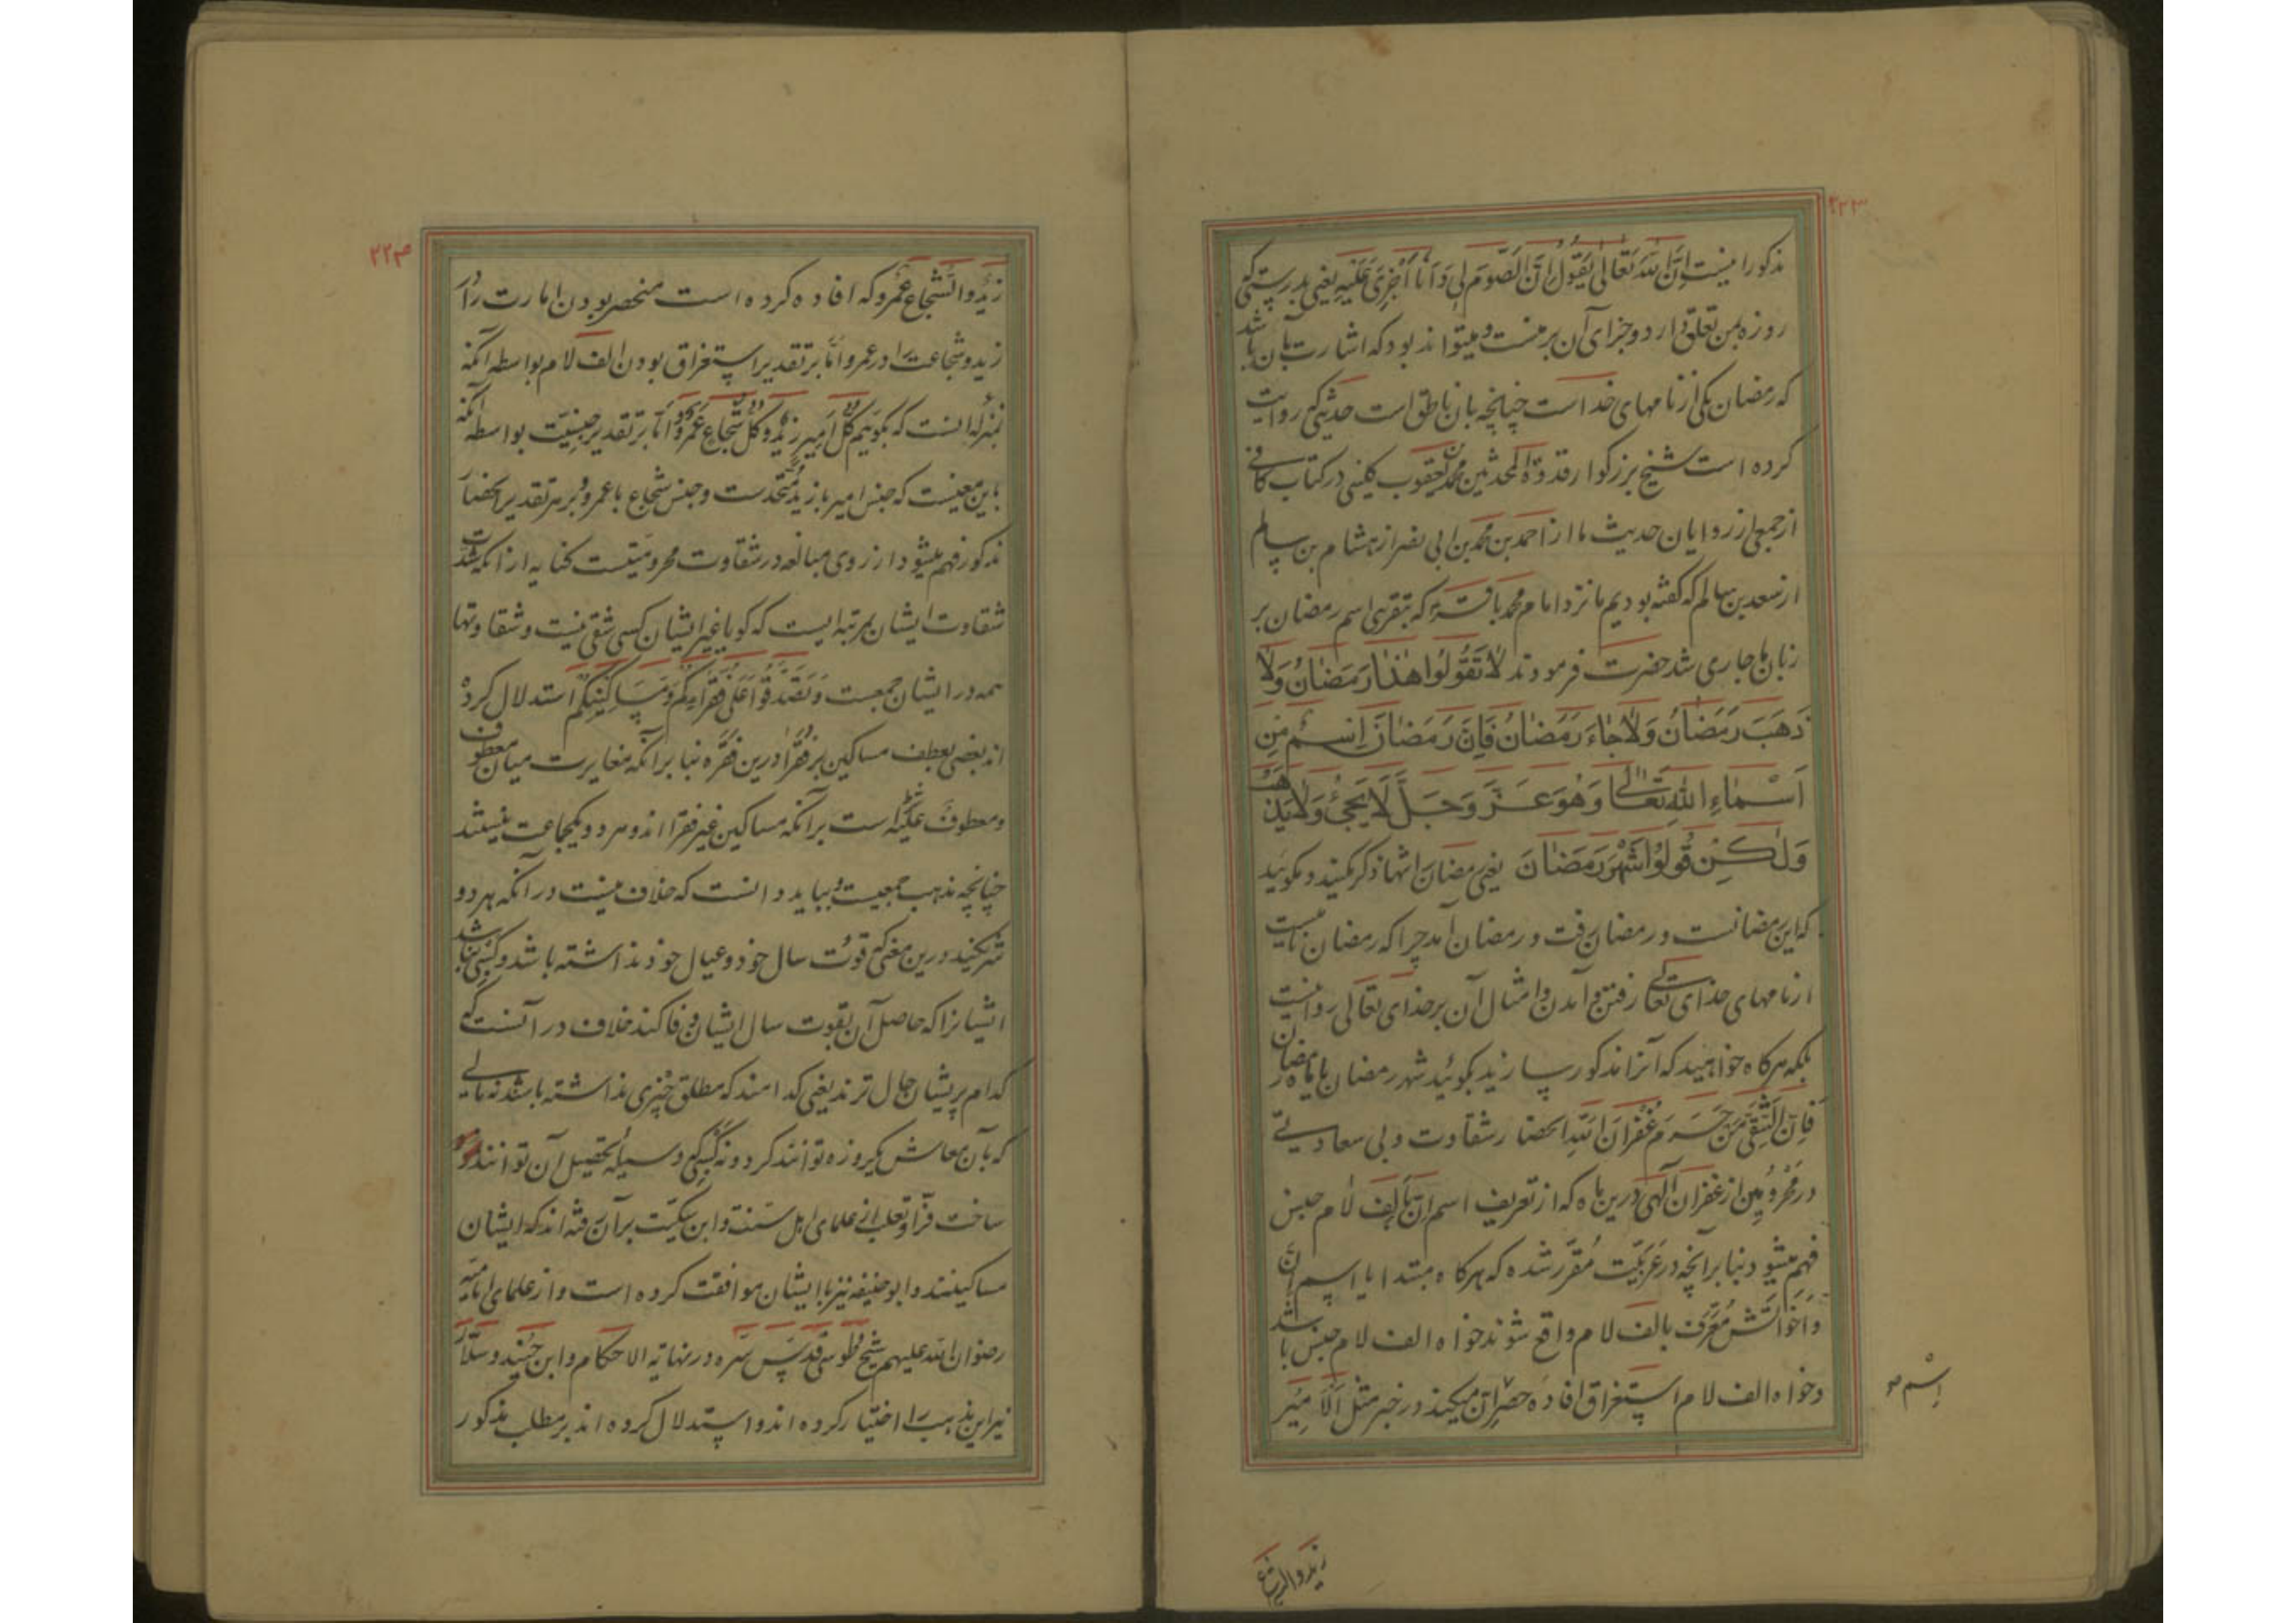 ۲۲۳
مذکور اینست إِنَّ اللهَ تَعَالٰی یَقُولُ إِنَّ الصَّوْمَ لِی وَ أَنَا أَجْزِی عَلَیْهِ یعنی بدرستی که
روزه بمن تعلق دارد و جزای آن بر منست و میتواند بود که اشارت بآن باشد
که رمضان یکی از نامهای خداست چنانچه بان ناطق است حدیثی که روایت
کرده است شیخ بزرگوار قدوة المحدثین محمد بن یعقوب کلینی در کتاب کافی
از جمعی از راویان حدیث ما از احمد بن محمد بن ابی نصر از هشام بن سالم
از سعد بن سالم که گفته بودیم ما نزد امام محمد باقر که بتقریبی اسم رمضان بر
زبان ما جاری شد حضرت فرمودند لَا تَقُولُوا هٰذَا رَمَضَانُ وَلَا
ذَهَبَ رَمَضَانُ وَلَا جَاءَ رَمَضَانُ فَإِنَّ رَمَضَانَ اِسْمٌ مِنْ
اَسْمَاءِ اللهِ تَعَالٰی وَهُوَ عَزَّ وَجَلَّ لَا یَجِیْءُ وَلَا یَذْهَبُ
وَلٰکِنْ قُولُوْا شَهْرُ رَمَضَانَ یعنی رمضان را تنها ذکر مکنید و مگوئید
که این رمضانست و رمضان رفت و رمضان آمد چرا که رمضان نامیست
از نامهای خدای تعالی رفتن و آمدن و امثال آن بر خدای تعالی روا نیست
بلکه هرگاه خواهید که آنرا مذکور سازید بگوئید شهر رمضان یا ماه رمضان
فَإِنَّ الشَّقِیَّ مَنْ حُرِمَ غُفْرَانَ اللهِ انحصار شقاوت و بی سعادتی
در محرومین از غفران الهی درین ماه که از تعریف اسم ان بالف لام جنس
فهم میشود بنا بر آنچه در عربیّت مُقرّر شده که هرگاه مبتدا یا اسم اِنَّ
و اخواتش معرَّف بالف لام واقع شوند خواه الف لام جنس باشد
و خواه الف لام استغراق افاده حصر آن میکند در خبر مثل اَلْاَمِیْرُ
اِسْم
زید والشجاع
۲۲۴
زَیْدٌ و الشُّجاع عَمْرو که افاده کرده است منحصر بودن امارت را در
زید و شجاعت را در عمرو امّا بر تقدیر استغراق بودن الف لام بواسطه آنکه
بمنزله انست که بگوئیم کُلُّ اَمِیرٍ زَیْدٌ و کُلُّ شُجَاعٍ عَمْرٌو و اما بر تقدیر جنسیّت بواسطه آنکه
باین معنیست که جنس امیر با زید متحدست و جنس شجاع با عمرو و بر هر تقدیر انحصار
مذکور فهم میشود از روی مبالغه در شقاوت محرومیتست کنایه از آنکه شدت
شقاوت ایشان بمرتبه ایست که گویا غیر ایشان کسی شقی نیست و شقاوتها
همه در ایشان جمعست وَ تَصَدَّقُوا عَلٰی فُقَرَائِکُمْ وَ مَسَاکِیْنِکُمْ استدلال کرده
اند بعضی بعطف مساکین بر فقرا درین فقره بنا بر آنکه مغایرت میان معطوف
و معطوف علیه شرط است بر آنکه مساکین غیر فقرا اند و هر دو یکجماعت نیستند
چنانچه مذهب جمعیست و بباید دانست که خلاف نیست در آنکه هر دو
شریکند درین معنی که قوت سال خود و عیال خود نداشته باشد و کسبی نباشد
ایشانرا که حاصل آن بقوت سال ایشان وفا کند خلاف در آنست که
کدام پریشان حال ترند یعنی کدامند که مطلق چیزی نداشته باشند نه مالی
که بآن معاش یکروزه توانند کرد و نه کسبی که وسیله تحصیل آن توانند
ساخت فرّا و ثعلب از علمای اهل سنت و ابن سکیت برآن رفته اند که ایشان
مساکینند و ابو حنیفه نیز با ایشان موافقت کرده است و از علمای امامیه
رضوان الله علیهم شیخ طوسی قدس سره در نهایة الاحکام و ابن جنید و سلار
نیز این مذهب را اختیار کرده اند و استدلال کرده اند بر مطلب مذکور